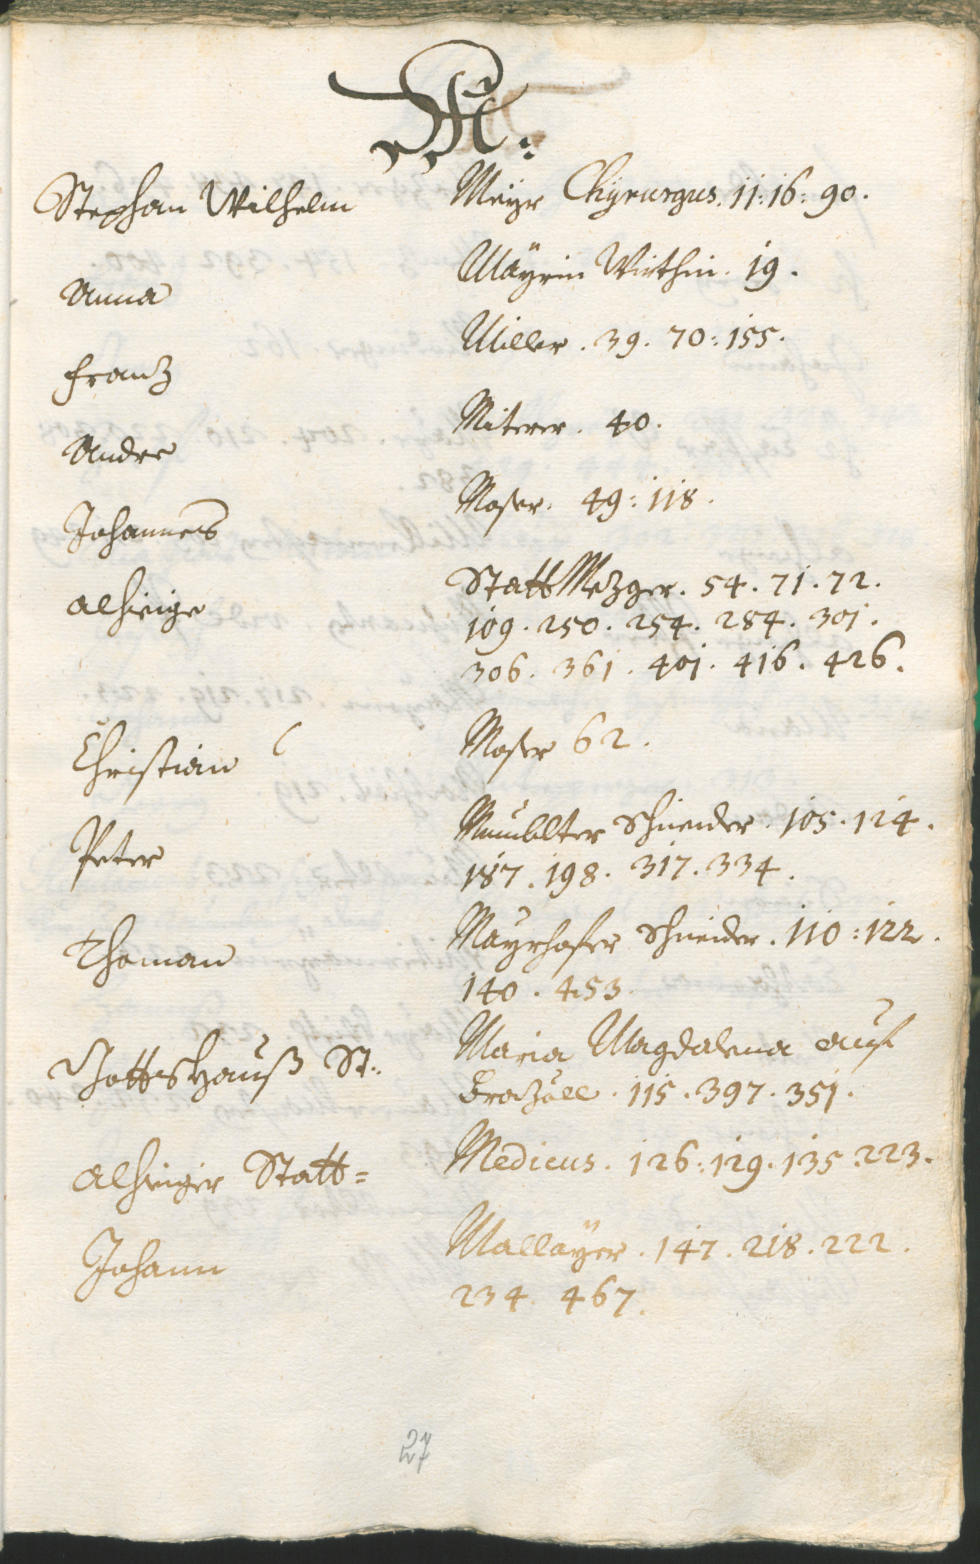 M:
Stephan Wilhelm Meÿr Chÿrurgus. 11: 16: 90.
Anna Maÿrin Wirthin. 19.
Franz Miller. 39. 70: 155.
Andre Miterer. 40.
Johannes Moser. 49: 118.
alhiesige Statt Mezger. 54. 71. 72.
109. 250. 254. 284. 301.
306. 361. 401. 416. 426.
Christian Moser 62.
Peter Schneider. 105. 124.
187. 198. 317. 334.
Thoman Maÿrhofer Schneider. 110: 122.
140. 453.
Gottshauß St: Maria Magdalena auf
115. 397. 351.
alhieiger Statt= Medicus. 126: 129. 135. 223.
Johann Mallaÿer. 147. 218. 222.
234. 467.
27